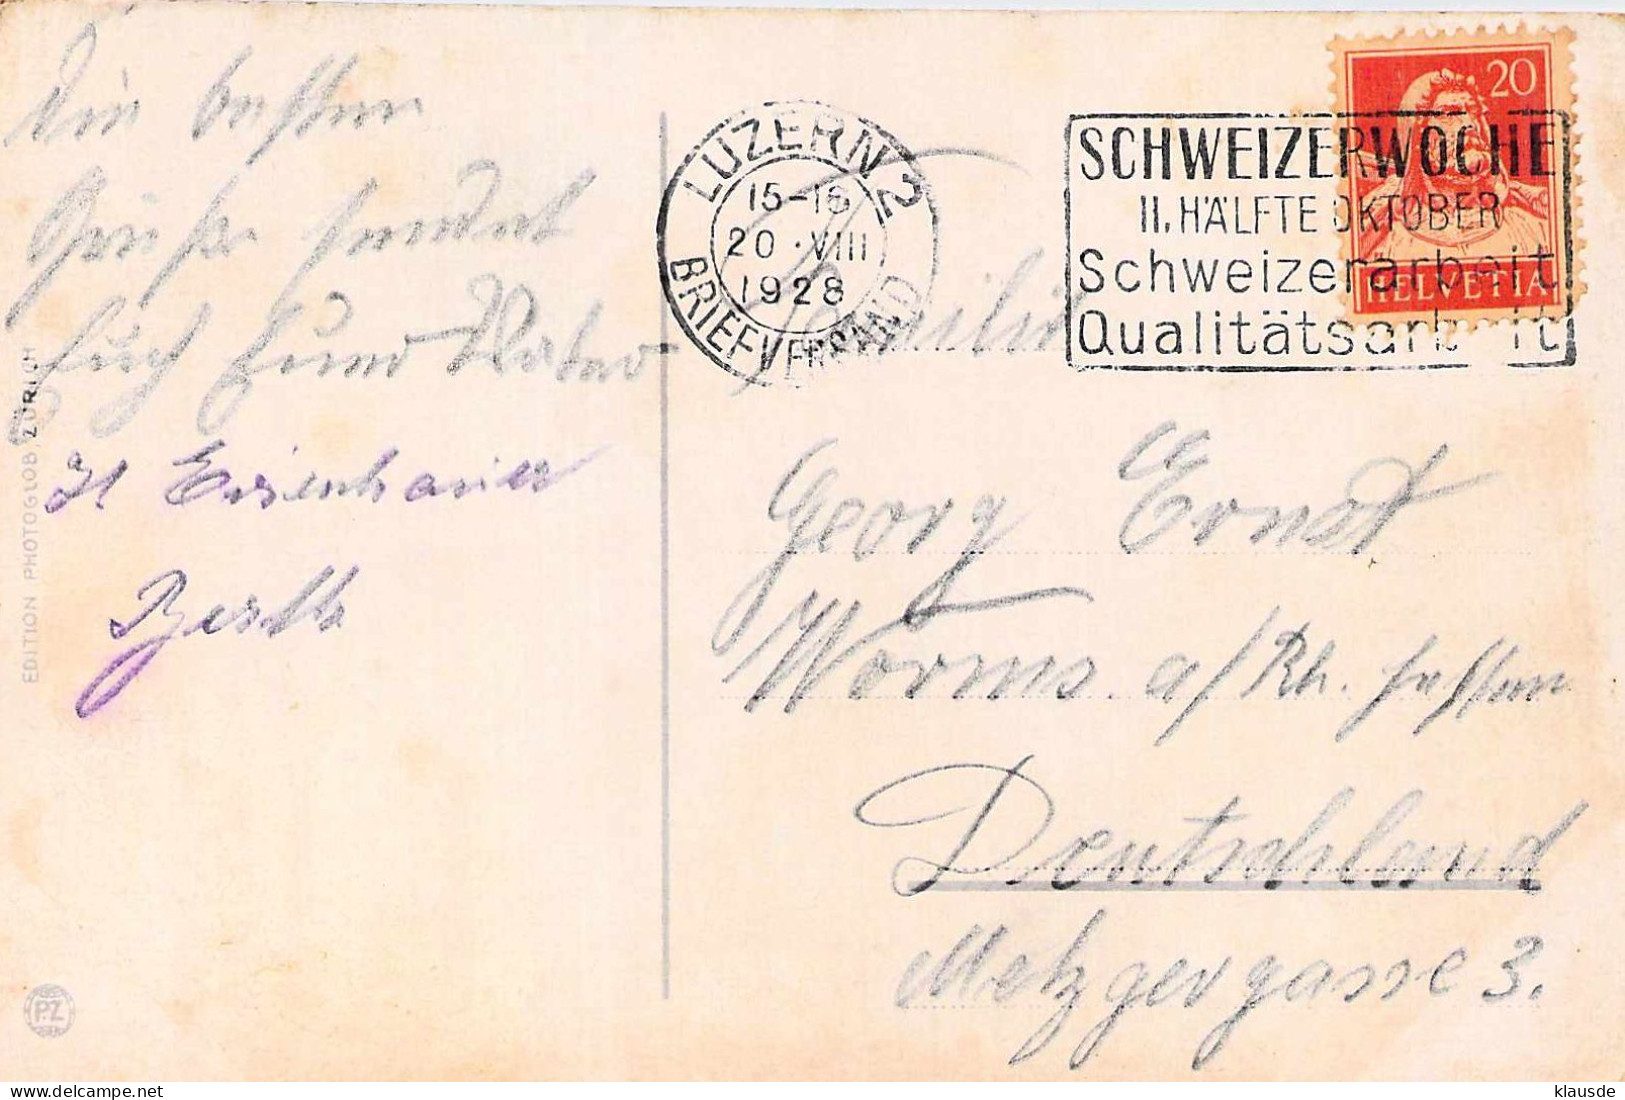 Die besten
Grüße sendet
Euch Euer Vater
H Eisenhauer
EDITION PHOTOGLOB, ZÜRICH
P.Z
LUZERN 2
15-16
20 · VIII
1928
BRIEFVERSAND
SCHWEIZERWOCHE
II. HÄLFTE OKTOBER
Schweizerarbeit
Qualitätsarbeit
20
HELVETIA
Familie
Georg Ernst
Worms a/Rh. Hessen
Deutschland
Metzgergasse 3.
klausde